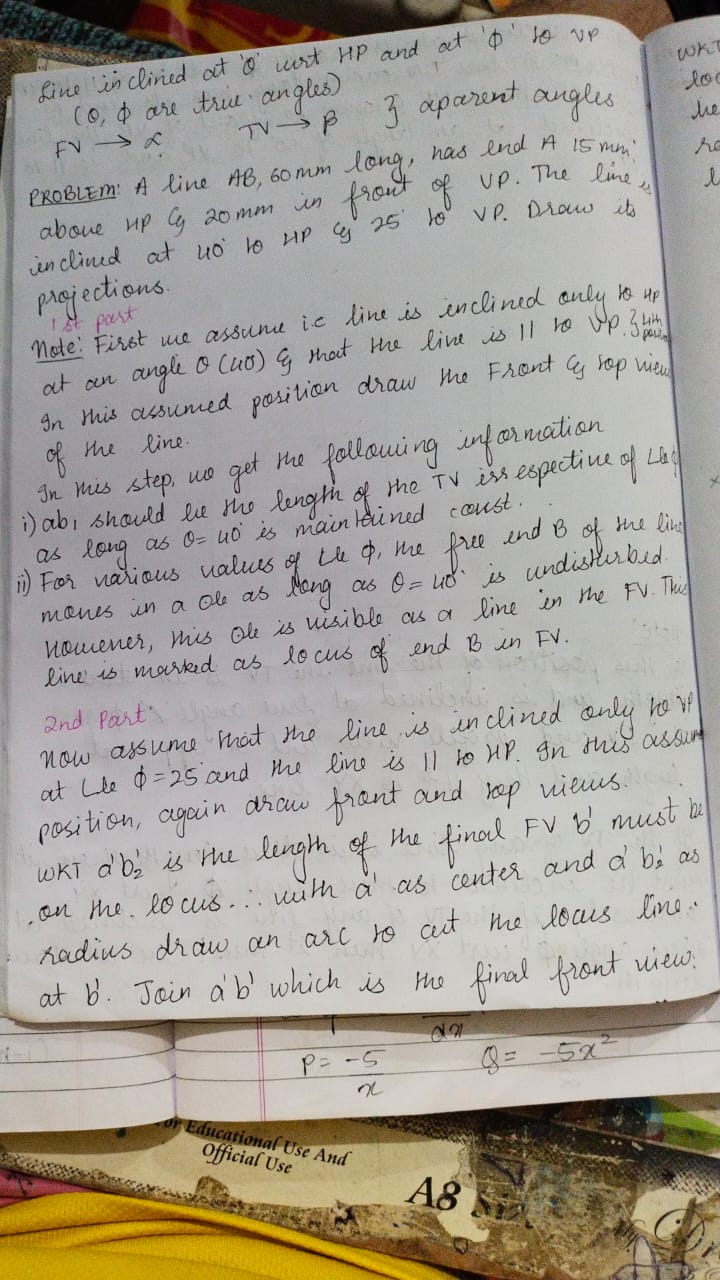 Line inclined at 'θ' wrt HP and at 'φ' to VP
(θ, φ are true angles)
FV → α TV → β } aparent angles
PROBLEM: A line AB, 60 mm long, has end A 15 mm
above HP & 20 mm in front of VP. The line is
inclined at 40° to HP & 25° to VP. Draw its
projections.
1st part
Note: First we assume i.e line is inclined only to HP
at an angle θ (40) & that the line is || to VP. }
In this assumed position draw the Front & top view
of the line.
In this step, we get the following information
i) ab₁ should be the length of the TV irrespective of Lle φ
as long as θ = 40° is maintained const.
ii) For various values of Lle φ, the free end B of the line
moves in a Ole as long as θ = 40° is undisturbed.
However, this Ole is visible as a line in the FV. This
line is marked as locus of end B in FV.
2nd Part:
Now assume that the line is inclined only to VP
at Lle φ = 25° and the line is || to HP. In this assum
position, again draw front and top views.
WKT a'b₂' is the length of the final FV b' must be
on the locus. ∴ with a' as center and a' b₂' as
radius draw an arc to cut the locus line.
at b'. Join a'b' which is the final front view.
WKT
loc
he
P = -5
x
dx
Q = -5x²
For Educational Use And
Official Use
A8